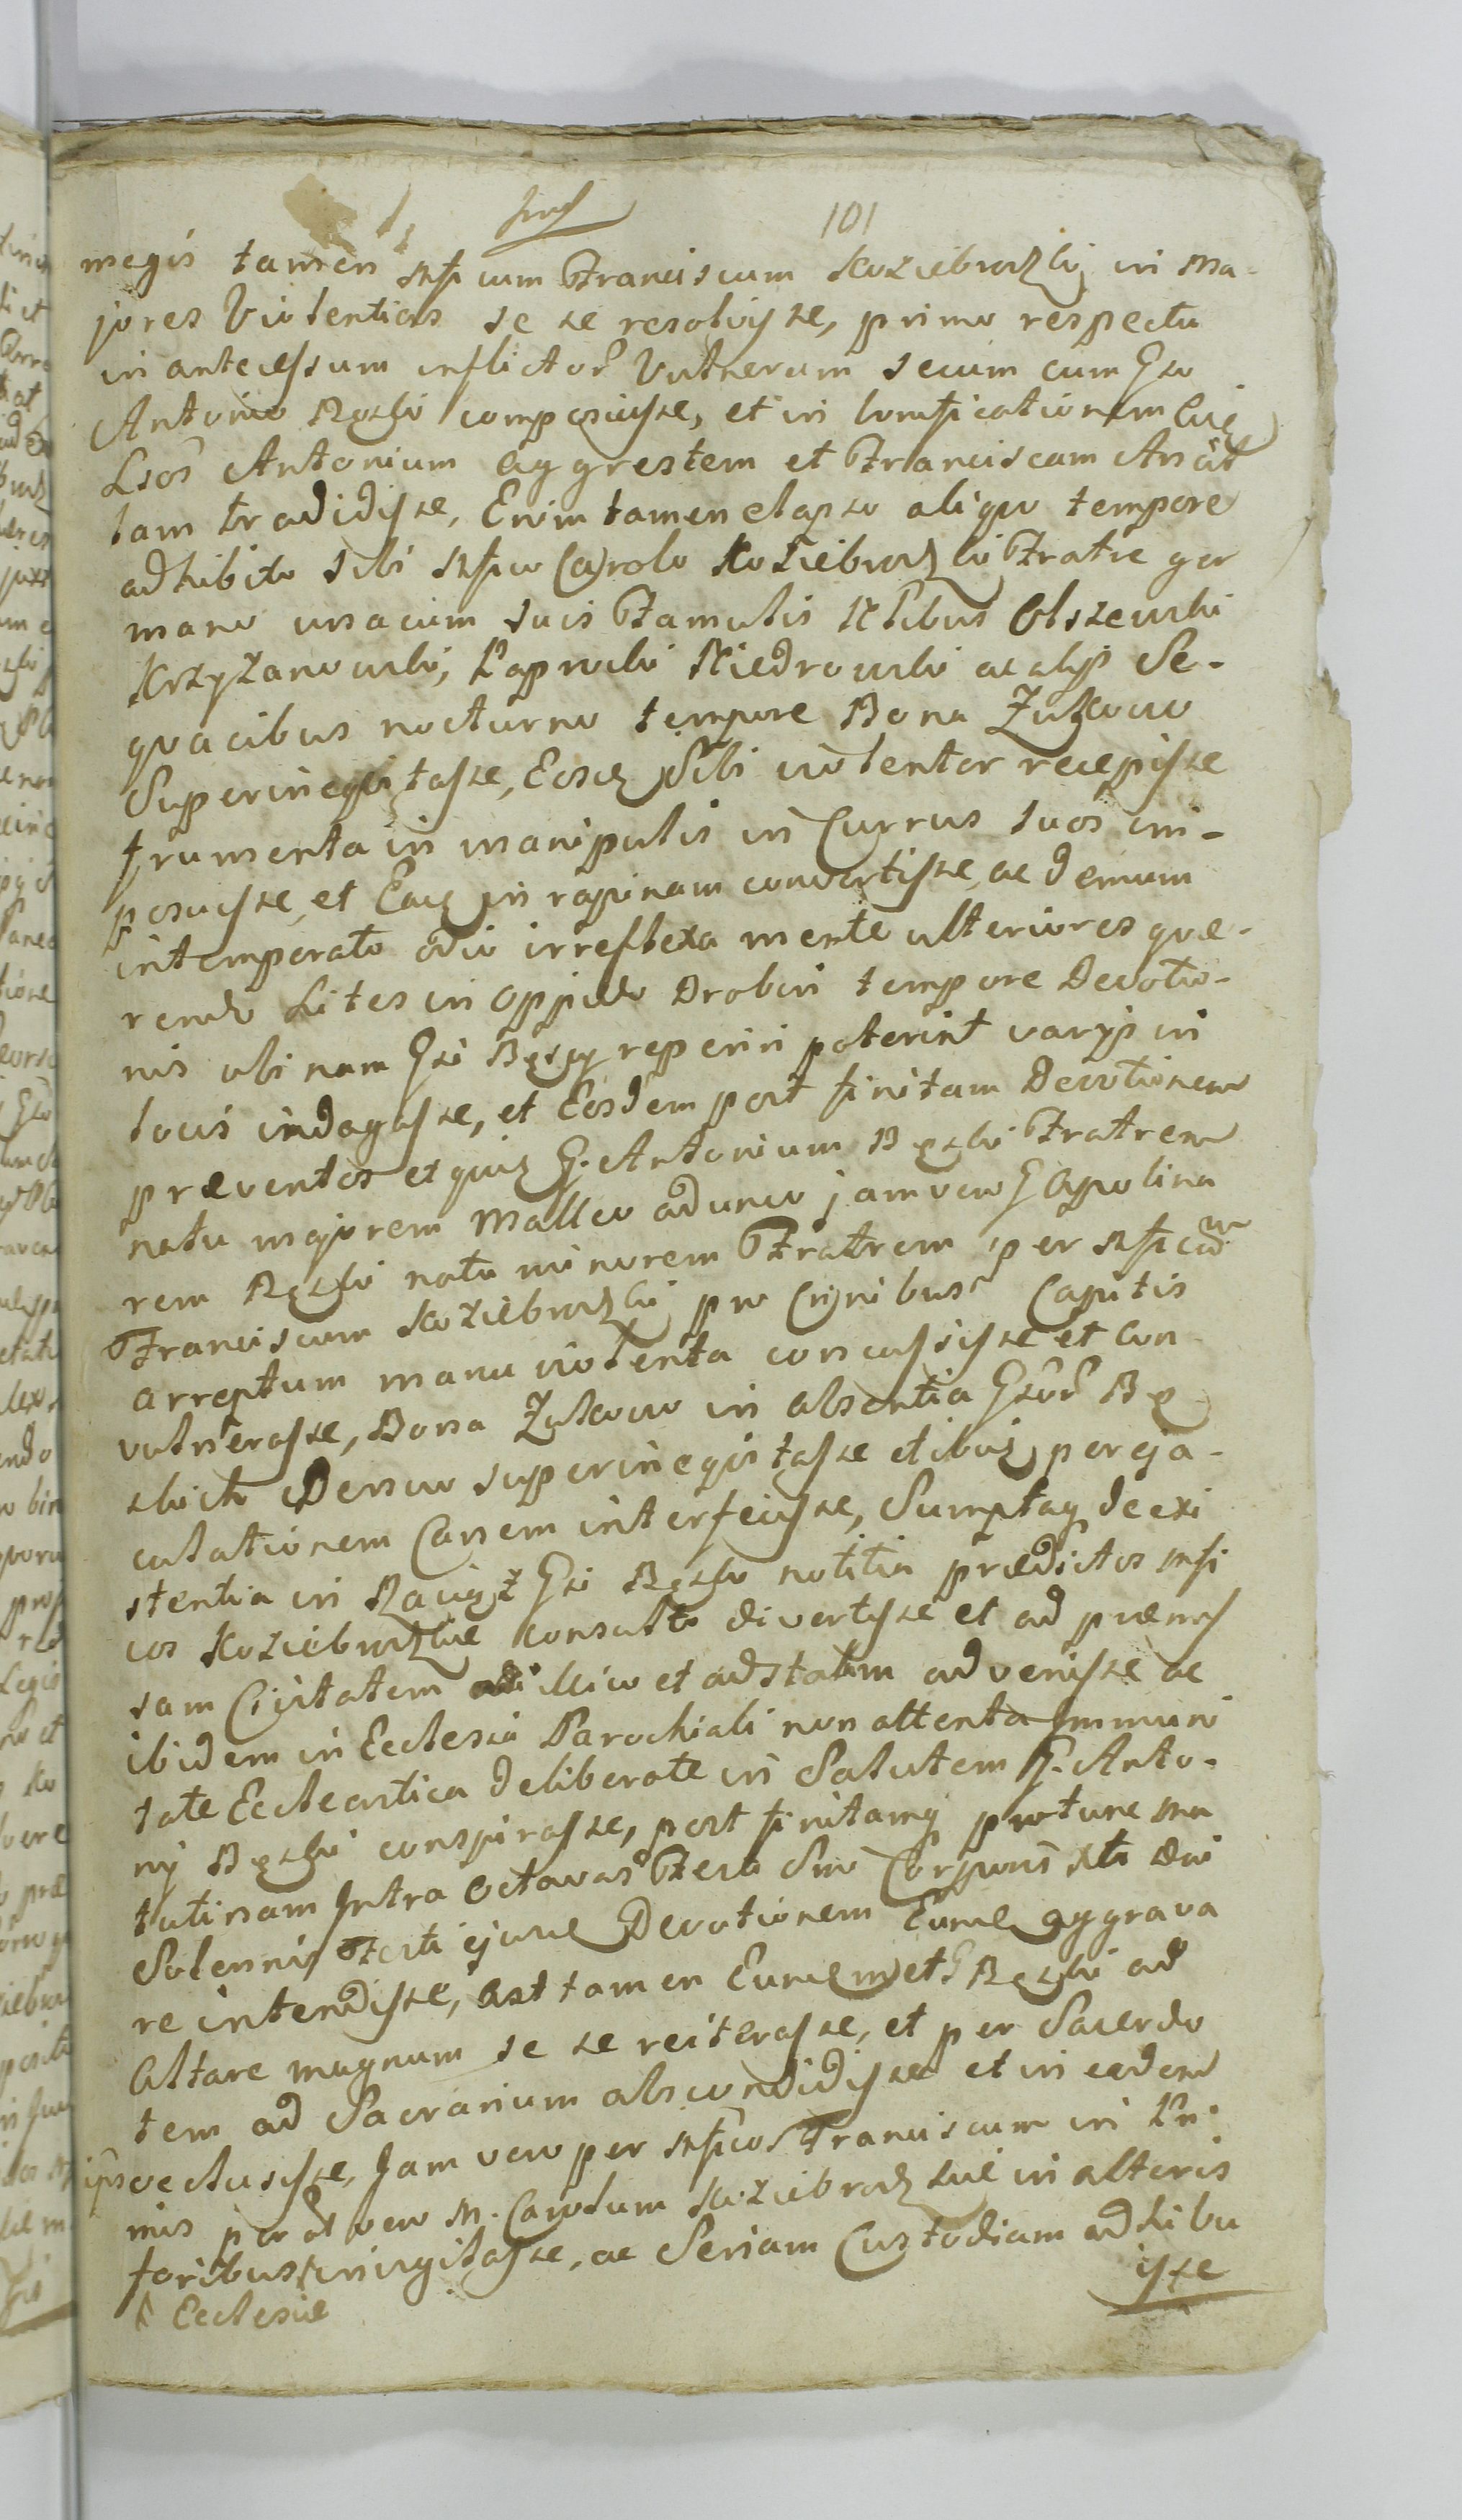 101
magis tamen Mficum Franciscum Koziebrodzki in Ma-
jores Violentias se se resolvisse, primo respectu
in antecessum inflictor Vulnerum secum cum Gso
Antonio Bęski composuisse, et in
Antonium Aggrestem et Franciscam Ancil
lam tradidisse, Enim tamen elapso aliquo tempore
adhibito sibi Mfico Carolo Koziebrodzki Fratre ger
mano unacum suis Famulis Nlibus Olszewski
Krzyżanowski, Łapnicki Niedrowski ac alijs Se-
quacibus nocturno tempore Bona Żukowo
Superinequitasse, Eosq sibi violenter recepisse
frumenta in manipulis in Currus suos im-
posuisse, et Eaq in rapinam convertisse, ac demum
intemperato odio irreflexa mente ulteriores quæ-
rendo Lites in Oppido Drobin tempore Devotio-
nis ubi nam Gsi Bęscy reperiri poterint varijs in
locis indagasse, et Eosdem post finitam Devotionem
præventos et quiq G. Antonium Bęski Fratrem
natu majorem Malleo adunco jam vero G Apolina
rem Bęski natu minorem Fratrem per Mficum
Franciscum Koziebrodzki pro Crinibus Capitis
arreptum manu violenta concussisse et Con
vulnerasse, Bona Żukowo in absentia Gsor Bę
skich Denuo superinequitasse et ibiq per eja-
culationem Canem interfecisse, Sumptaq de exi
stentia in Raciąż Gsi Bęski notitia prædictos Mfi
cos Koziebrodzkie consulto divertisse et ad præmis
sam Civitatem illico et adstatim advenisse ac
ibidem in Ecclesia Parochiali non attenta Immuni
tate Eccleastica deliberate in Salutem G. Anto-
nij Bęski conspirasse, post finitamq protunc Ma
tutinam Intra Octavas Festi Smi Corporis Xti Dni
Solennis Festi ejusve Devotionem Eumq aggrava
re intendisse, Ast tamen Eumqmet G Bęski ad
Altare magnum se se reiterasse, et per Sacerdo
tem ad Sacrarium abscondidisse et in eodem
ipso eclusisse, Jam vero per Mficos Franciscum in Pri-
mis per at vero M. Carolum Koziebrodzkie in alteris
foribus invigilasse, ac Seriam Custodiam adhibu
isse
Ecclesiæ